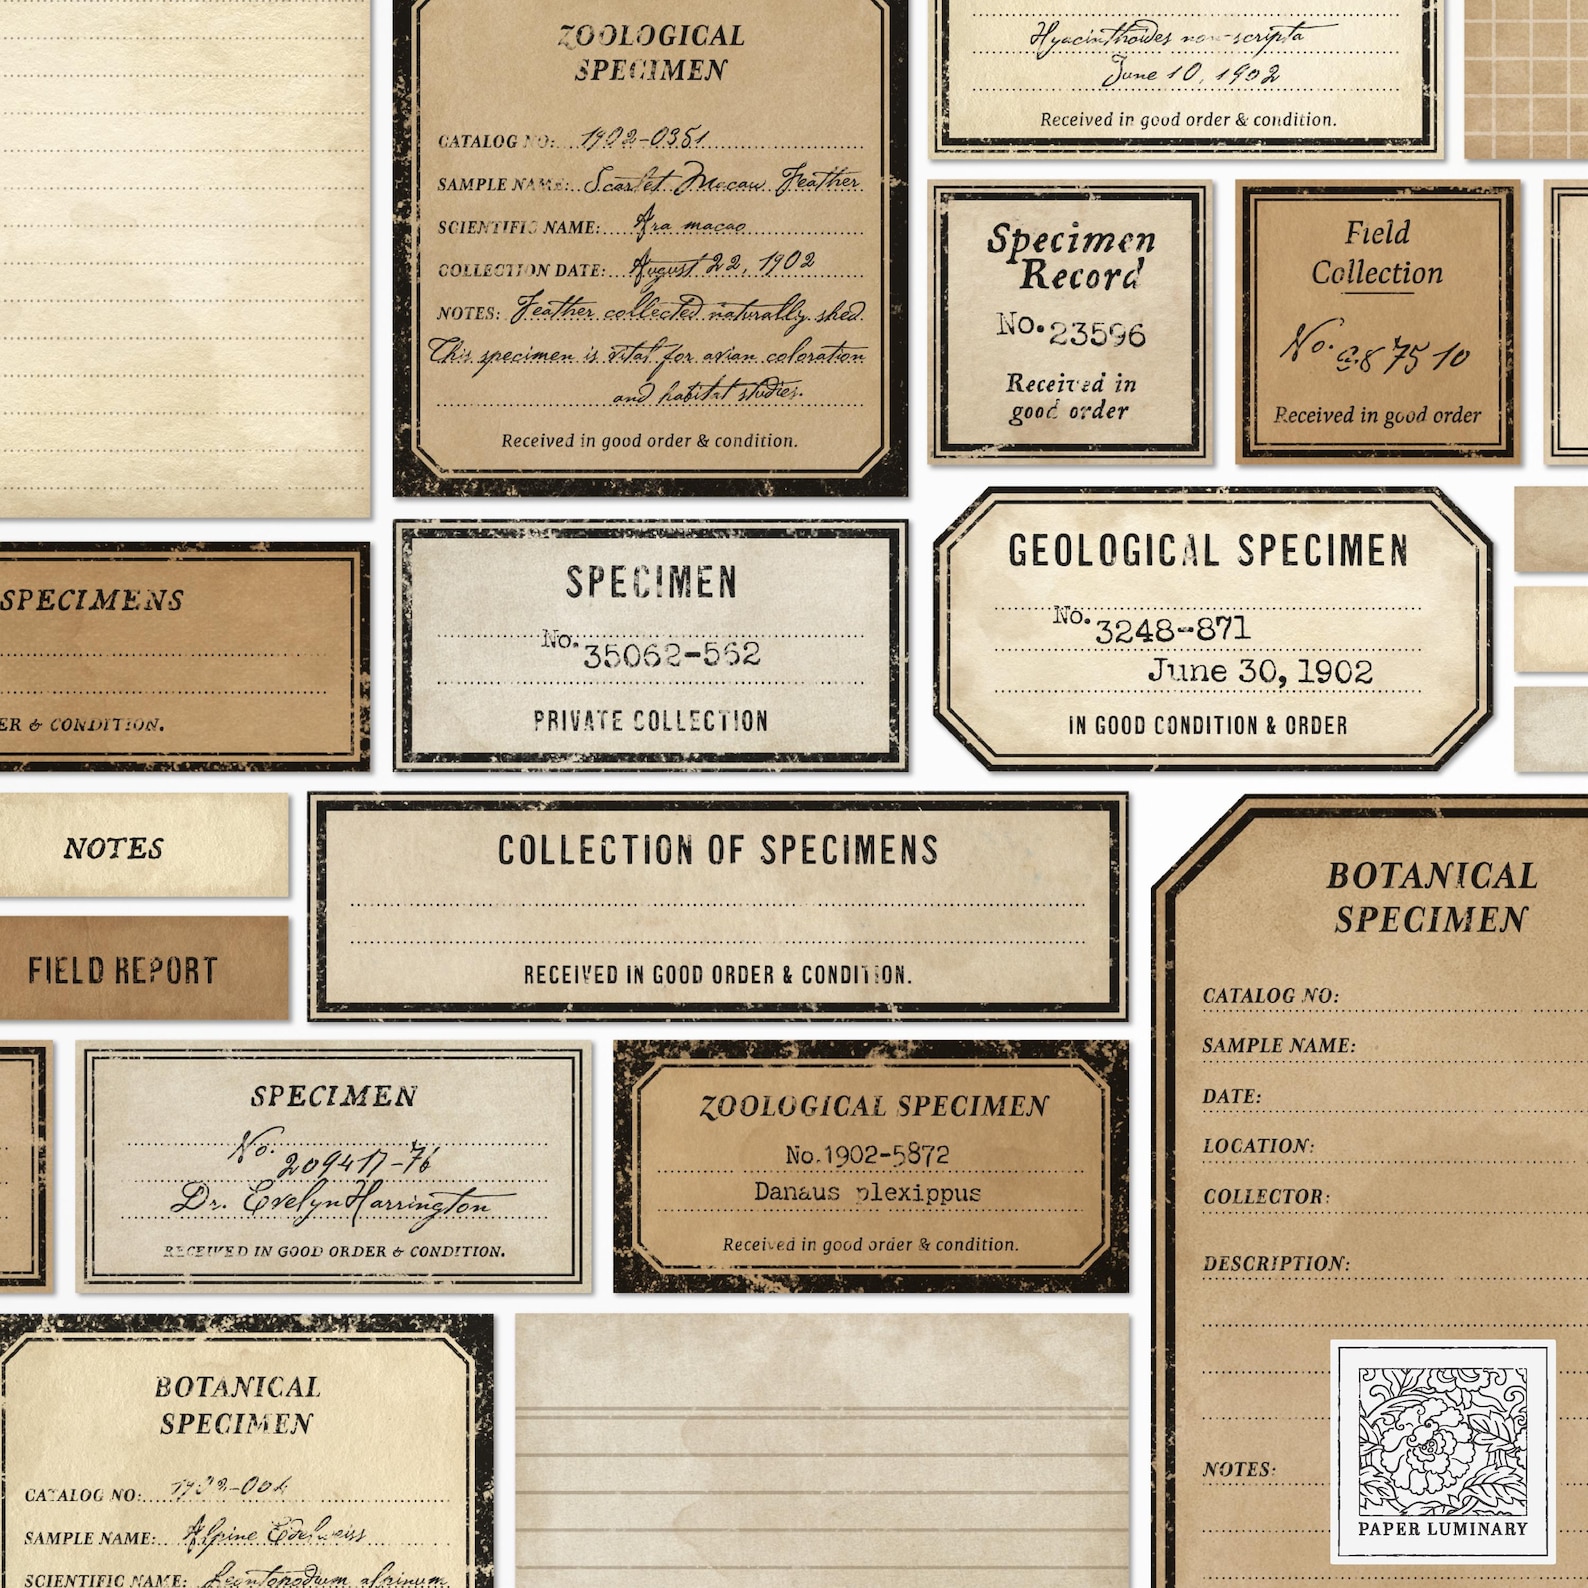 ZOOLOGICAL
SPECIMEN
CATALOG NO: 1902-0351
SAMPLE NAME: Scarlet Macaw Feather
SCIENTIFIC NAME: Ara macao
COLLECTION DATE: August 22, 1902
NOTES: Feather collected naturally shed.
This specimen is vital for avian coloration
and habitat studies.
Received in good order & condition.
Hyacinthoides non-scripta
June 10, 1902
Received in good order & condition.
Specimen
Record
No. 23596
Received in
good order
Field
Collection
No. 987510
Received in good order
SPECIMENS
ER & CONDITION.
SPECIMEN
No. 35062-562
PRIVATE COLLECTION
GEOLOGICAL SPECIMEN
No. 3248-871
June 30, 1902
IN GOOD CONDITION & ORDER
NOTES
FIELD REPORT
COLLECTION OF SPECIMENS
RECEIVED IN GOOD ORDER & CONDITION.
SPECIMEN
No. 209417-76
Dr. Evelyn Harrington
RECEIVED IN GOOD ORDER & CONDITION.
ZOOLOGICAL SPECIMEN
No.1902-5872
Danaus plexippus
Received in good order & condition.
BOTANICAL
SPECIMEN
CATALOG NO:
SAMPLE NAME:
DATE:
LOCATION:
COLLECTOR:
DESCRIPTION:
NOTES:
BOTANICAL
SPECIMEN
CATALOG NO:
SAMPLE NAME: Alpine Edelweiss
SCIENTIFIC NAME: Leontopodium alpinum
PAPER LUMINARY